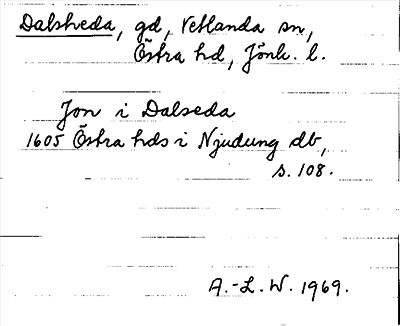 Dalsheda, gd, Vetlanda sn,
Östra hd, Jönk. l.
Jon i Dalseda
1605 Östra hds i Njudung db,
s. 108.
A.-L. W. 1969.